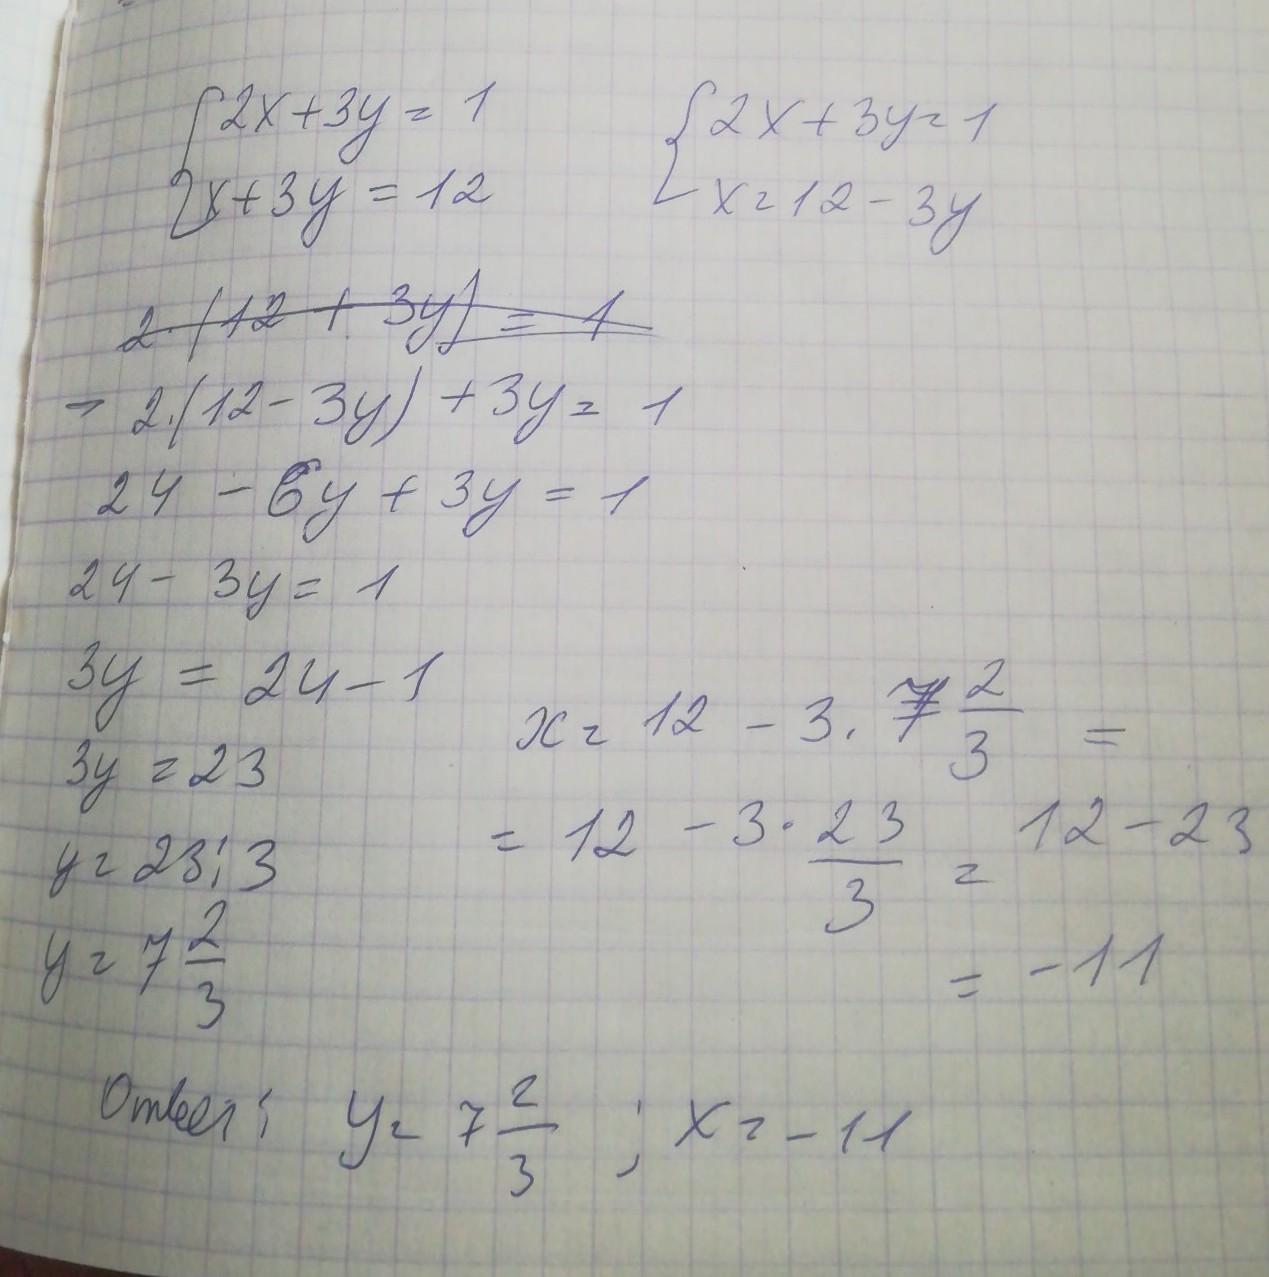 {2x+3y=1
x+3y=12
{2x+3y=1
x=12-3y
2·(12+3y)=1
-2·(12-3y)+3y=1
24-6y+3y=1
24-3y=1
3y=24-1
3y=23
y=23:3
y=7 2/3
x=12-3·7 2/3=
=12-3·23/3=12-23
=-11
Ответ: y=7 2/3; x=-11